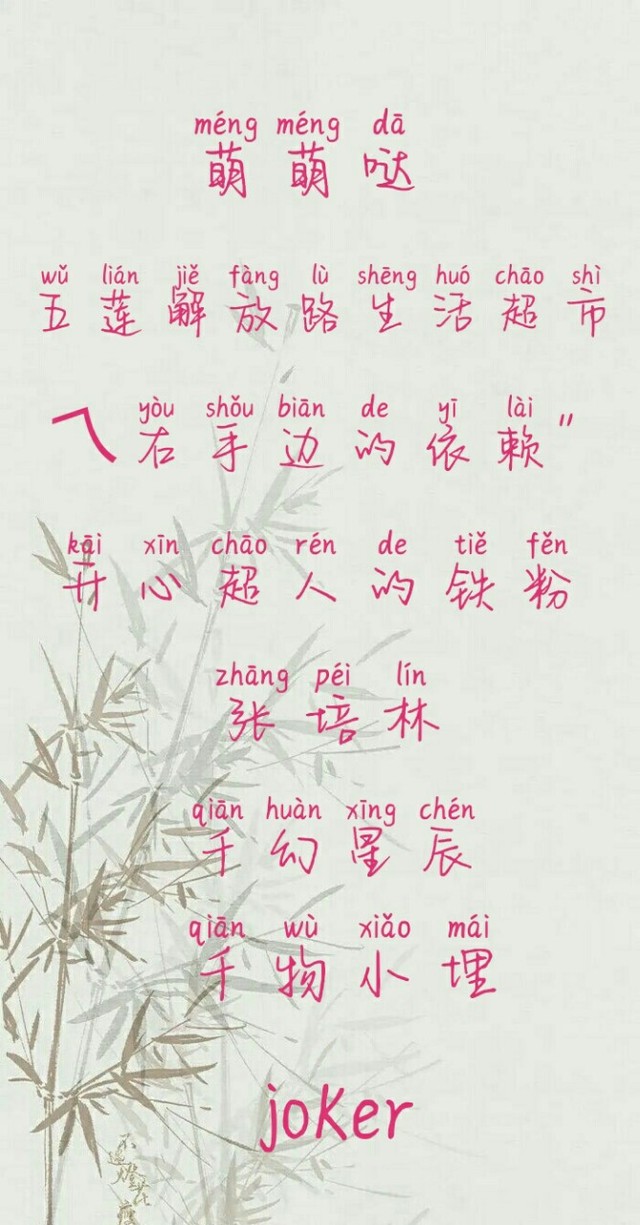 méng méng dā
萌萌哒
wǔ lián jiě fàng lù shēng huó chāo shì
五莲解放路生活超市
yòu shǒu biān de yī lài
乀右手边的依赖"
kāi xīn chāo rén de tiě fěn
开心超人的铁粉
zhāng péi lín
张培林
qiān huàn xīng chén
千幻星辰
qiān wù xiǎo mái
千物小埋
joker